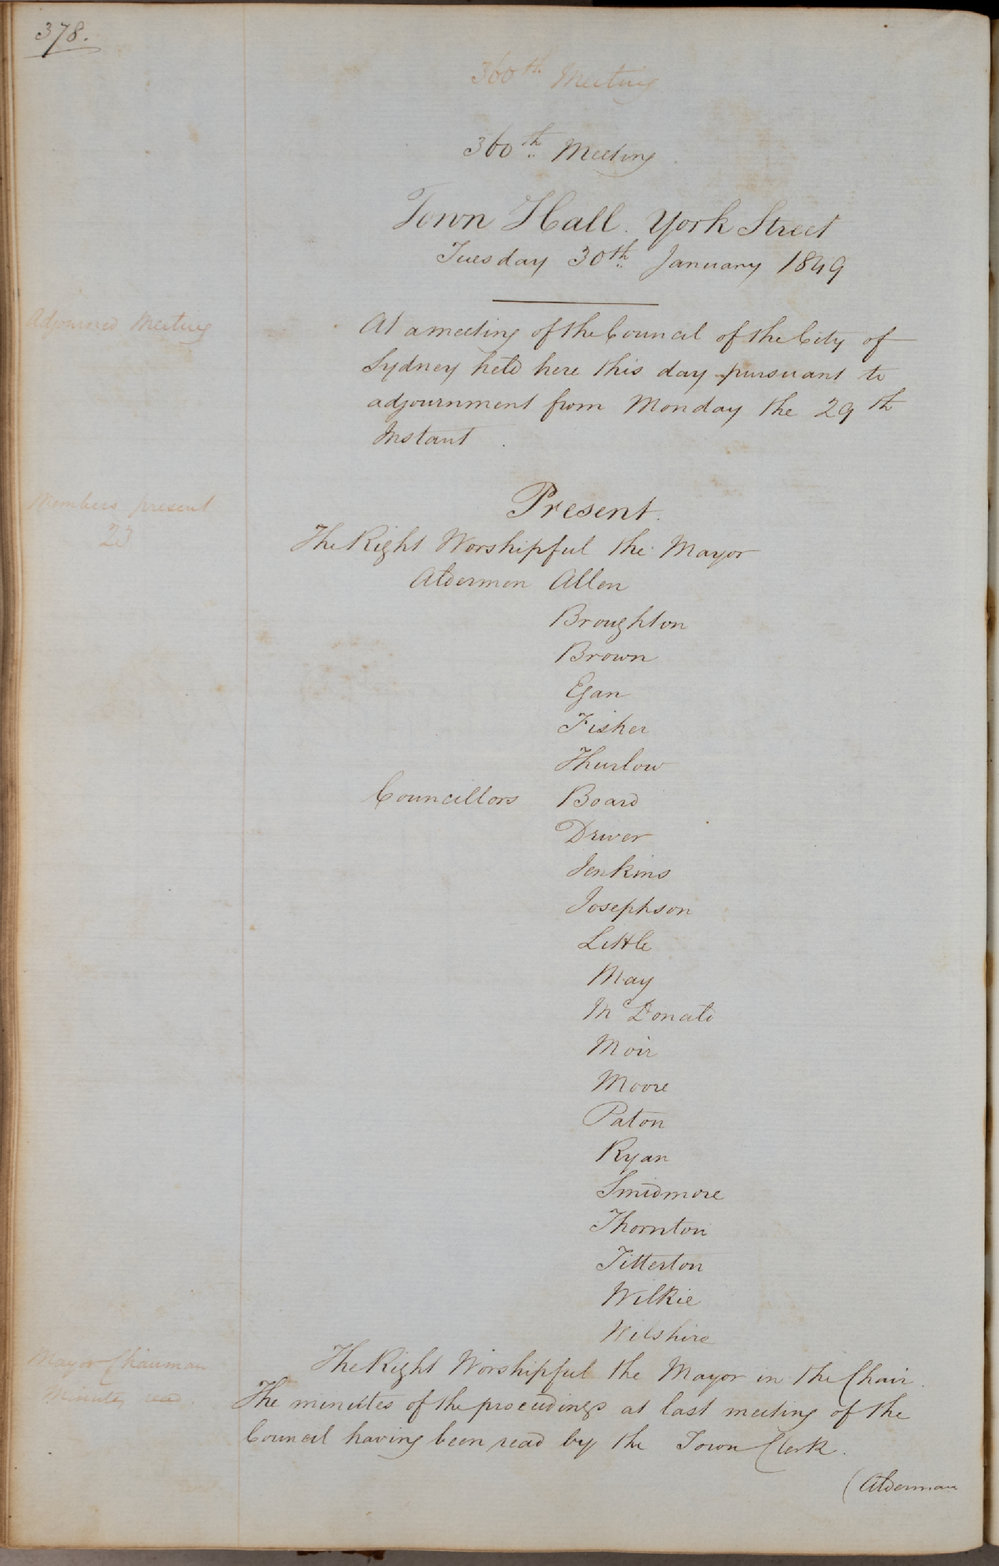 378.
360th Meeting
360th Meeting
Town Hall. York Street
Tuesday 30th January 1849
Adjourned Meeting
At a meeting of the Council of the City of
Sydney held here this day pursuant to
adjournment from Monday the 29th
Instant.
Members present
23
Present.
The Right Worshipful the Mayor
Aldermen Allen
Broughton
Brown
Egan
Fisher
Thurlow
Councillors Board
Driver
Jenkins
Josephson
Little
May
McDonald
Moir
Moore
Paton
Ryan
Smidmore
Thornton
Titterton
Wilkie
Wilshire
Mayor Chairman
Minutes read
The Right Worshipful the Mayor in the Chair.
The minutes of the proceedings at last meeting of the
Council having been read by the Town Clerk.
(Alderman